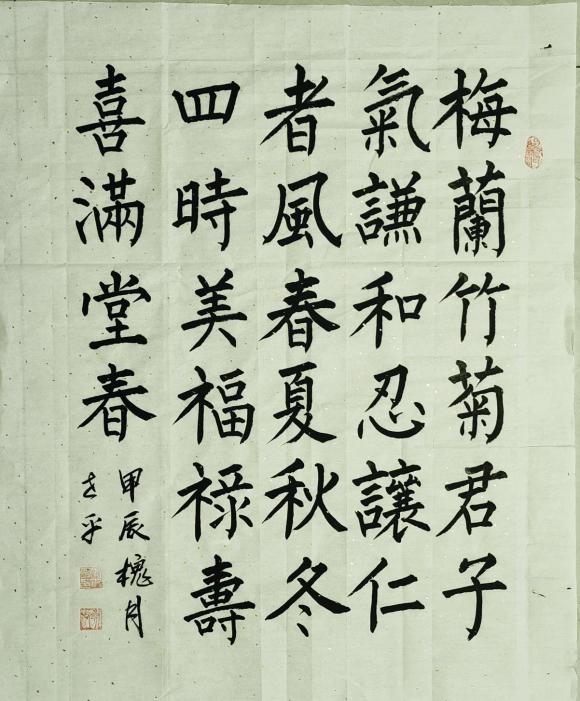 梅蘭竹菊君子
氣謙和忍讓仁
者風春夏秋冬
四時美福祿壽
喜滿堂春
甲辰槐月